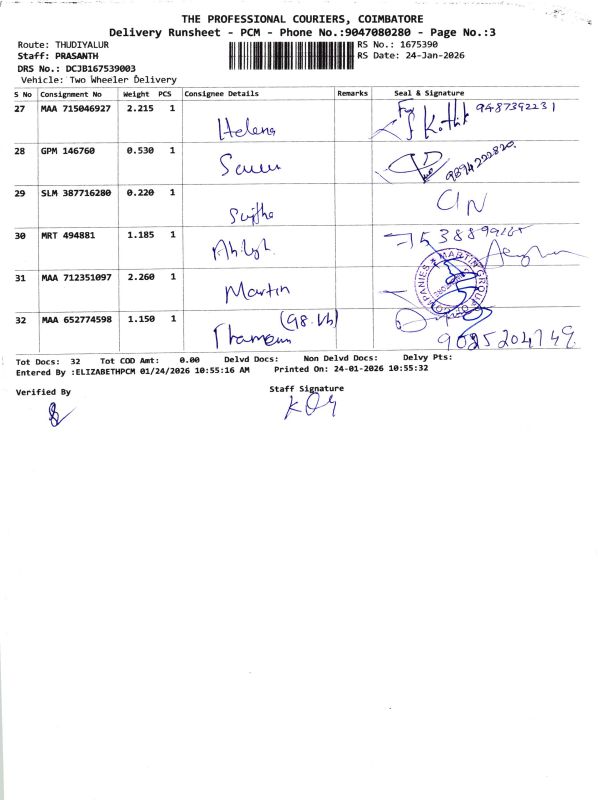 THE PROFESSIONAL COURIERS, COIMBATORE
Delivery Runsheet - PCM - Phone No.:9047080280 - Page No.:3
Route: THUDIYALUR RS No.: 1675390
Staff: PRASANTH RS Date: 24-Jan-2026
DRS No.: DCJB167539003
Vehicle: Two Wheeler Delivery
S No Consignment No Weight PCS Consignee Details Remarks Seal & Signature
27 MAA 715046927 2.215 1 Helena 9487392231
28 GPM 146760 0.530 1 9894222820
29 SLM 387716280 0.220 1
30 MRT 494881 1.185 1
31 MAA 712351097 2.260 1 Martin MARTIN GROUP COMPANIES
32 MAA 652774598 1.150 1 9025204749
Tot Docs: 32 Tot COD Amt: 0.00 Delvd Docs: Non Delvd Docs: Delvy Pts:
Entered By :ELIZABETHPCM 01/24/2026 10:55:16 AM Printed On: 24-01-2026 10:55:32
Verified By Staff Signature